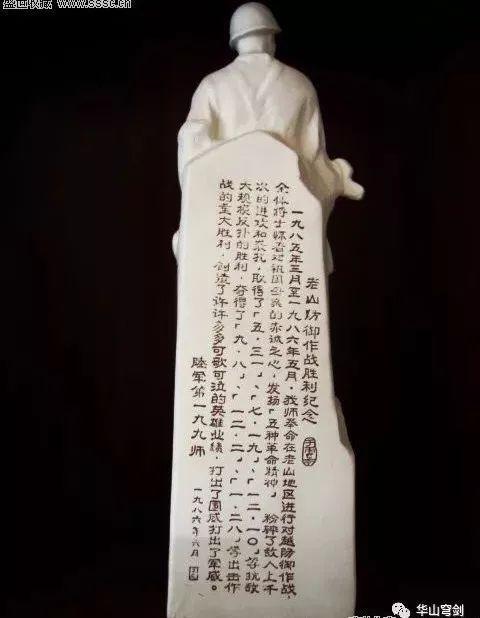 盛世收藏
www.sssc.cn
老山防御作战胜利纪念
一九八五年三月至一九八六年五月，我师奉命在老山地区进行对越防御作战，
全体将士怀着对祖国母亲的赤诚之心，发扬「五种革命精神」粉碎了敌人上千
次的进攻和袭扰，取得了「五·三一」、「七·一九」、「一二·一〇」等抗敌
大规模反扑的胜利，夺得了「九·八」、「一二·二」、「一·二八」等出击作
战的重大胜利，创造了许许多多可歌可泣的英雄业绩，打出了国威打出了军威。
陆军第一九九师
一九八六年六月
华山穹剑